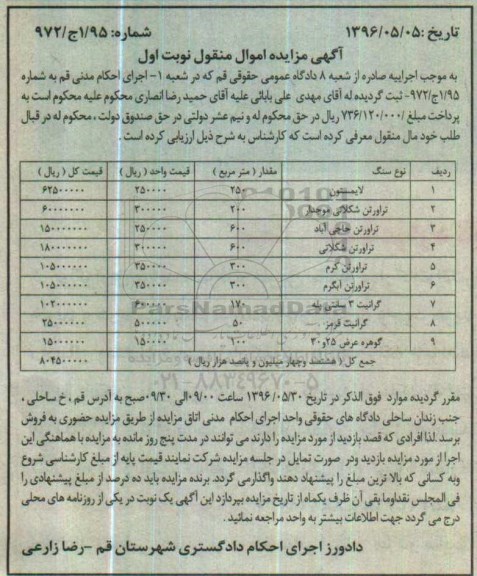 تاریخ :۱۳۹۶/۰۵/۰۵
شماره: ۱/۹۵ج/۹۷۲
آگهی مزایده اموال منقول نوبت اول
به موجب اجراییه صادره از شعبه ۸ دادگاه عمومی حقوقی قم که در شعبه ۱- اجرای احکام مدنی قم به شماره
۱/۹۵ج/۹۷۲- ثبت گردیده له آقای مهدی علی بابائی علیه آقای حمید رضا انصاری محکوم علیه محکوم است به
پرداخت مبلغ ۷۳۶/۱۲۰/۰۰۰/ ریال در حق محکوم له و نیم عشر دولتی در حق صندوق دولت ، محکوم له در قبال
طلب خود مال منقول معرفی کرده است که کارشناس به شرح ذیل ارزیابی کرده است .
ردیف نوع سنگ مقدار ( متر مربع ) قیمت واحد ( ریال ) قیمت کل ( ریال )
۱ لایمستون ۲۵۰ ۲۵۰۰۰۰ ۶۲۵۰۰۰۰۰
۲ تراورتن شکلاتی موجدار ۲۰۰ ۳۰۰۰۰۰ ۶۰۰۰۰۰۰۰
۳ تراورتن حاجی آباد ۶۰۰ ۲۵۰۰۰۰ ۱۵۰۰۰۰۰۰۰
۴ تراورتن شکلاتی ۶۰۰ ۳۰۰۰۰۰ ۱۸۰۰۰۰۰۰۰
۵ تراورتن کرم ۳۰۰ ۳۵۰۰۰۰ ۱۰۵۰۰۰۰۰۰
۶ تراورتن آبگرم ۳۰۰ ۳۵۰۰۰۰ ۱۰۵۰۰۰۰۰۰
۷ گرانیت ۳ سانتی پله ۱۷۰ ۶۰۰۰۰۰ ۱۰۲۰۰۰۰۰۰
۸ گرانیت قرمز ۵۰ ۵۰۰۰۰۰ ۲۵۰۰۰۰۰۰
۹ گوهره عرض ۲۵-۳۰ ۱۰۰ ۱۵۰۰۰۰ ۱۵۰۰۰۰۰۰
جمع کل ( هشتصد وچهار میلیون و پانصد هزار ریال ) ۸۰۴۵۰۰۰۰۰
ParsNamadData
۰۲۱-۸۸۳۴۹۶۷۰-۵
مقرر گردیده موارد فوق الذکر در تاریخ ۱۳۹۶/۰۵/۳۰ ساعت ۰۹/۰۰الی ۰۹/۳۰صبح به آدرس قم ، خ ساحلی ،
جنب زندان ساحلی دادگاه های حقوقی واحد اجرای احکام مدنی اتاق مزایده از طریق مزایده حضوری به فروش
برسد .لذا افرادی که قصد بازدید از مورد مزایده را دارند می توانند در مدت پنج روز مانده به مزایده با هماهنگی این
اجرا از مورد مزایده بازدید ودر صورت تمایل در جلسه مزایده شرکت نمایند قیمت پایه از مبلغ کارشناسی شروع
وبه کسانی که بالا ترین مبلغ را پیشنهاد دهند واگذارمی گردد. برنده مزایده باید ده درصد از مبلغ پیشنهادی را
فی المجلس نقداوما بقی آن ظرف یکماه از تاریخ مزایده بپردازد این آگهی یک نوبت در یکی از روزنامه های محلی
درج می گردد جهت اطلاعات بیشتر به واحد مراجعه نمائید .
دادورز اجرای احکام دادگستری شهرستان قم -رضا زارعی